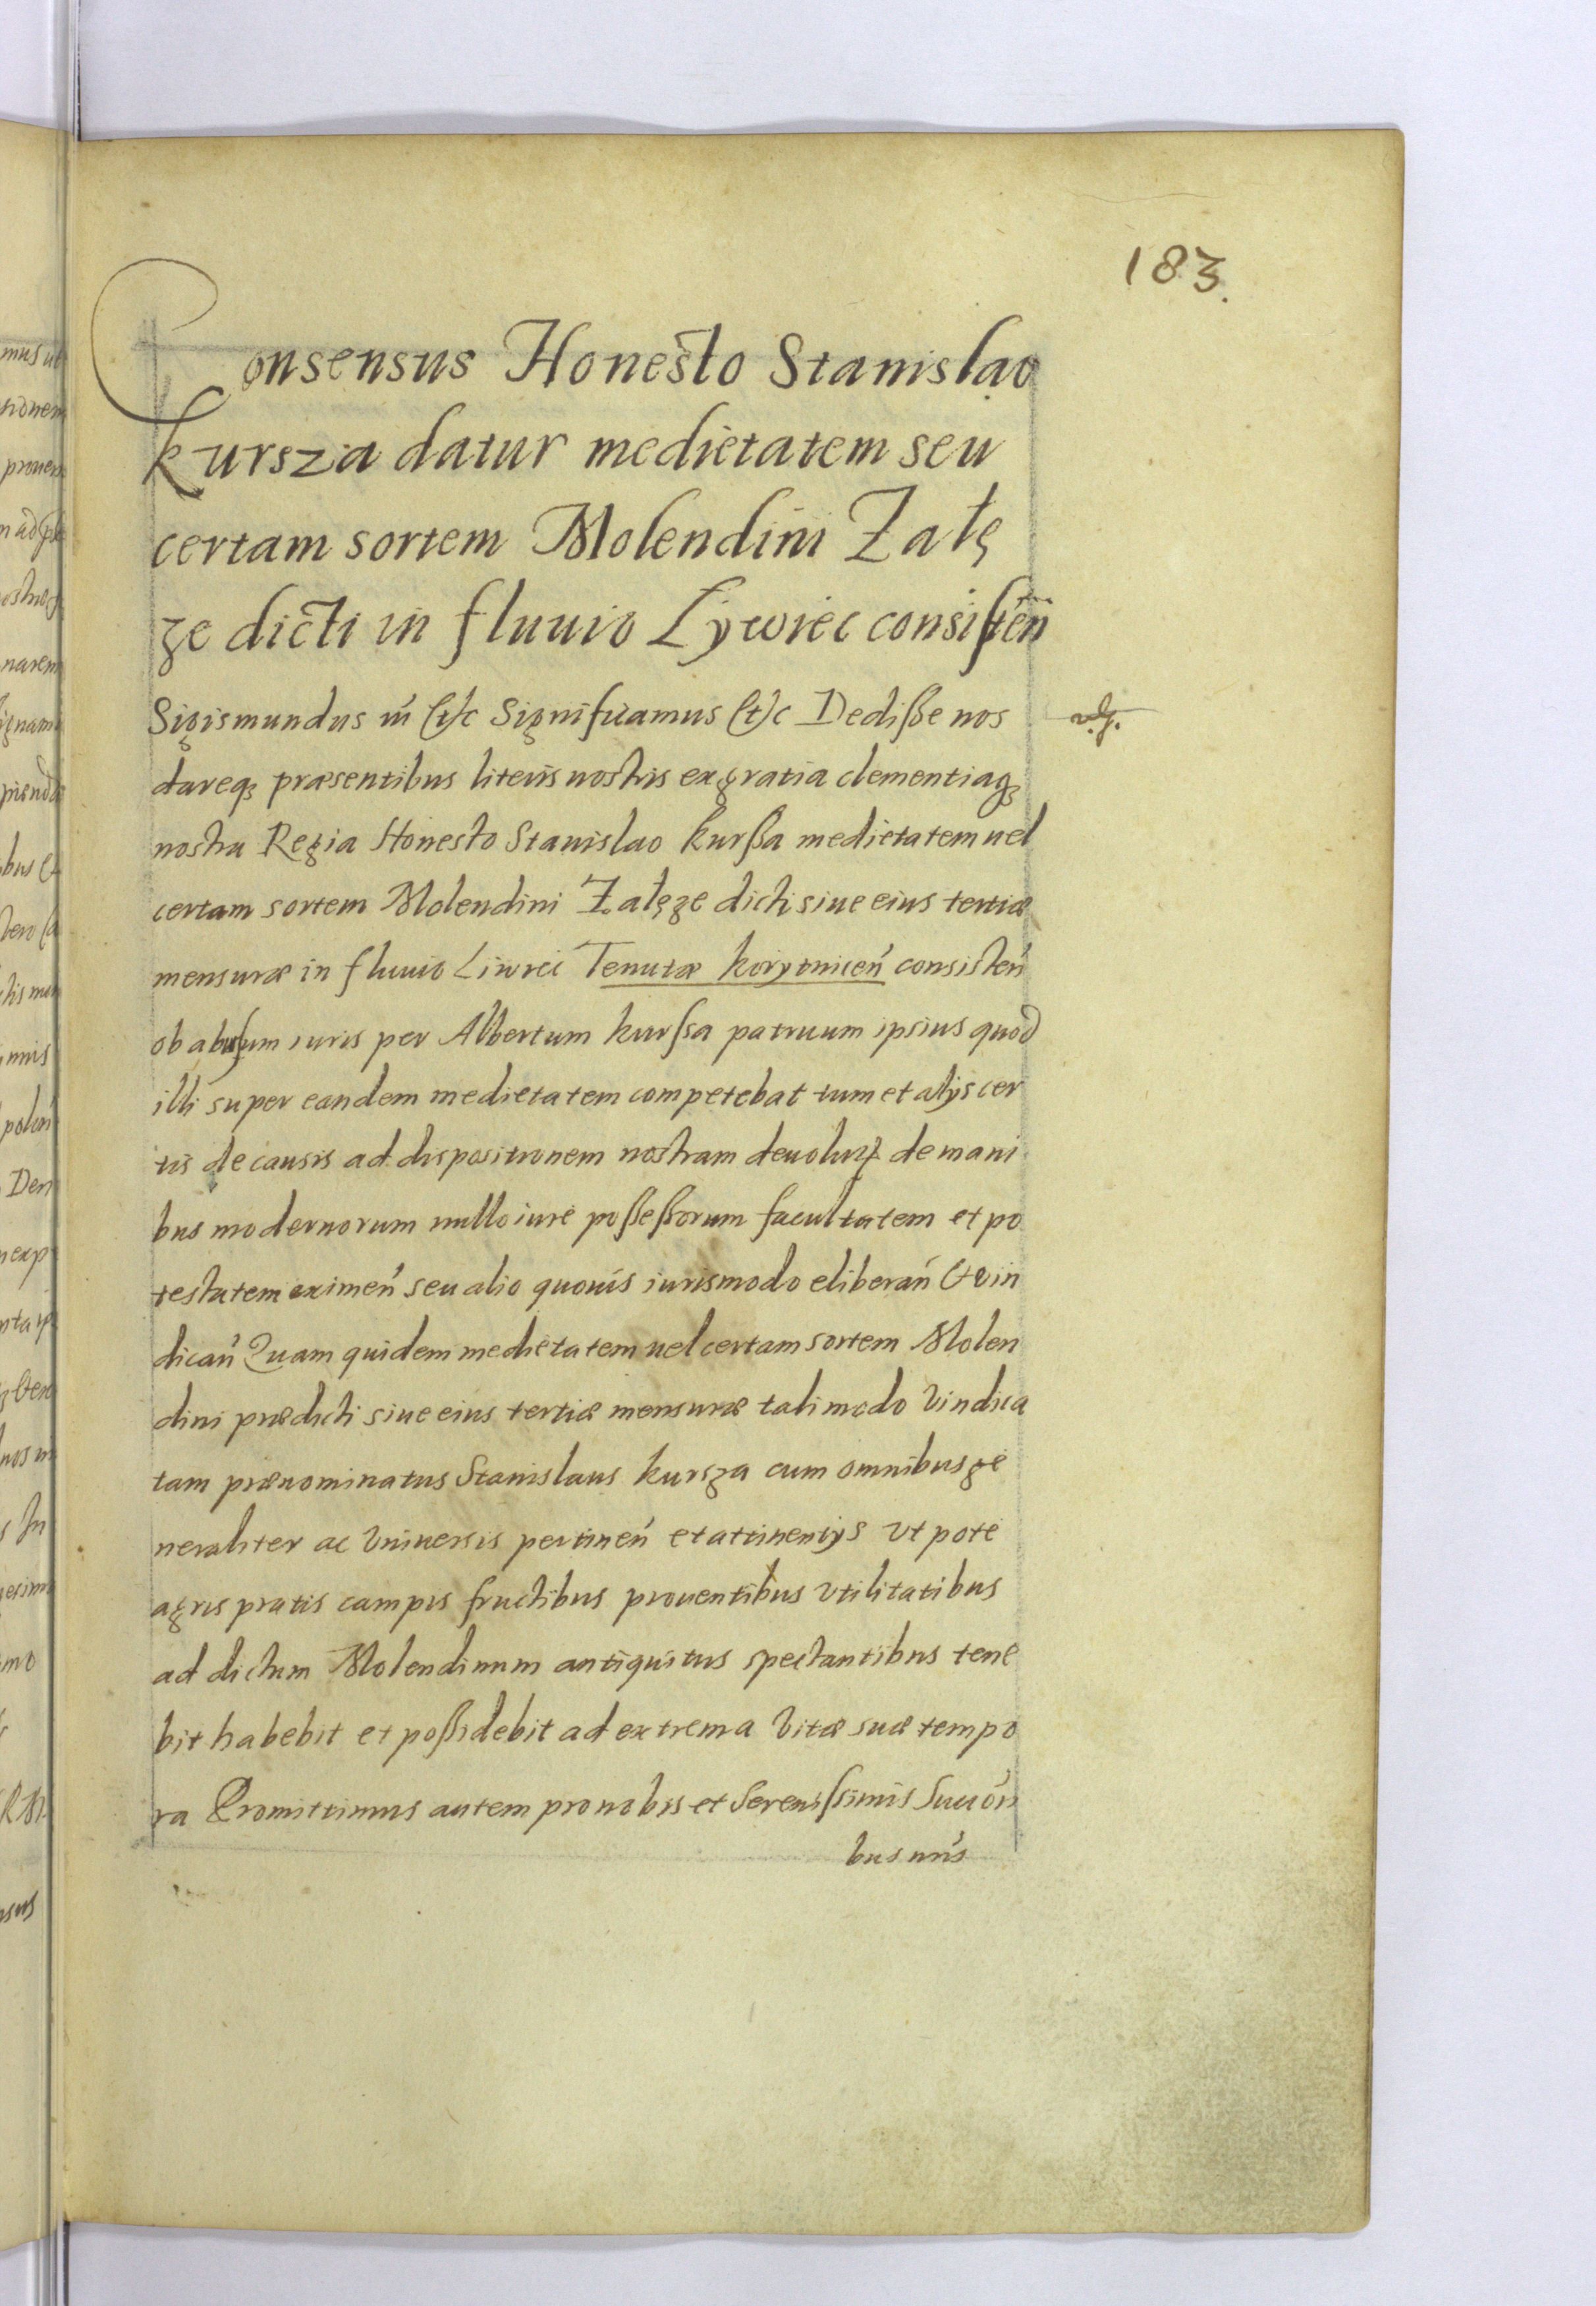 183.
Consensus Honesto Stanislao
Kursza datur medietatem seu
certam sortem Molendini Załę
ze dicti in fluuio Lywiec consisteń
Sigismundus etc Significamus etc Dediße nos
dareq₃ præsentibus literis nostris ex gratia clementiaq₃
nostra Regia Honesto Stanislao Kurßa medietatem uel
certam sortem Molendini Załęze dicti siue eius tertiæ
mensuræ in fluuio Liwiec Tenutæ Korytniceń consisteń
ob abusum iuris per Albertum Kurssa patruum ipsius quod
illi super eandem medietatem competebat tum et alijs cer
tis de causis ad dispositionem nostram deuolutā de mani
bus modernorum nullo iure poßeßorum facultatem et po
testatem eximeń seu alio quouis iurismodo eliberań et vin
dicań Quam quidem medietatem uel certam sortem Molen
dini prædicti siue eius tertiæ mensuræ tali modo vindica
tam prænominatus Stanislaus Kursza cum omnibus ge
neraliter ac vniuersis pertineń et attinentijs vt pote
agris pratis campis fructibus prouentibus vtilitatibus
ad dictum Molendinum antiquitus spectantibus tene
bit habebit et poßidebit ad extrema vitæ suæ tempo
ra Promittimus autem pro nobis et Serenissimis Succōri
bus nr̄is